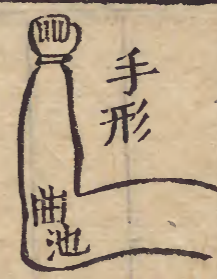 手形
曲池